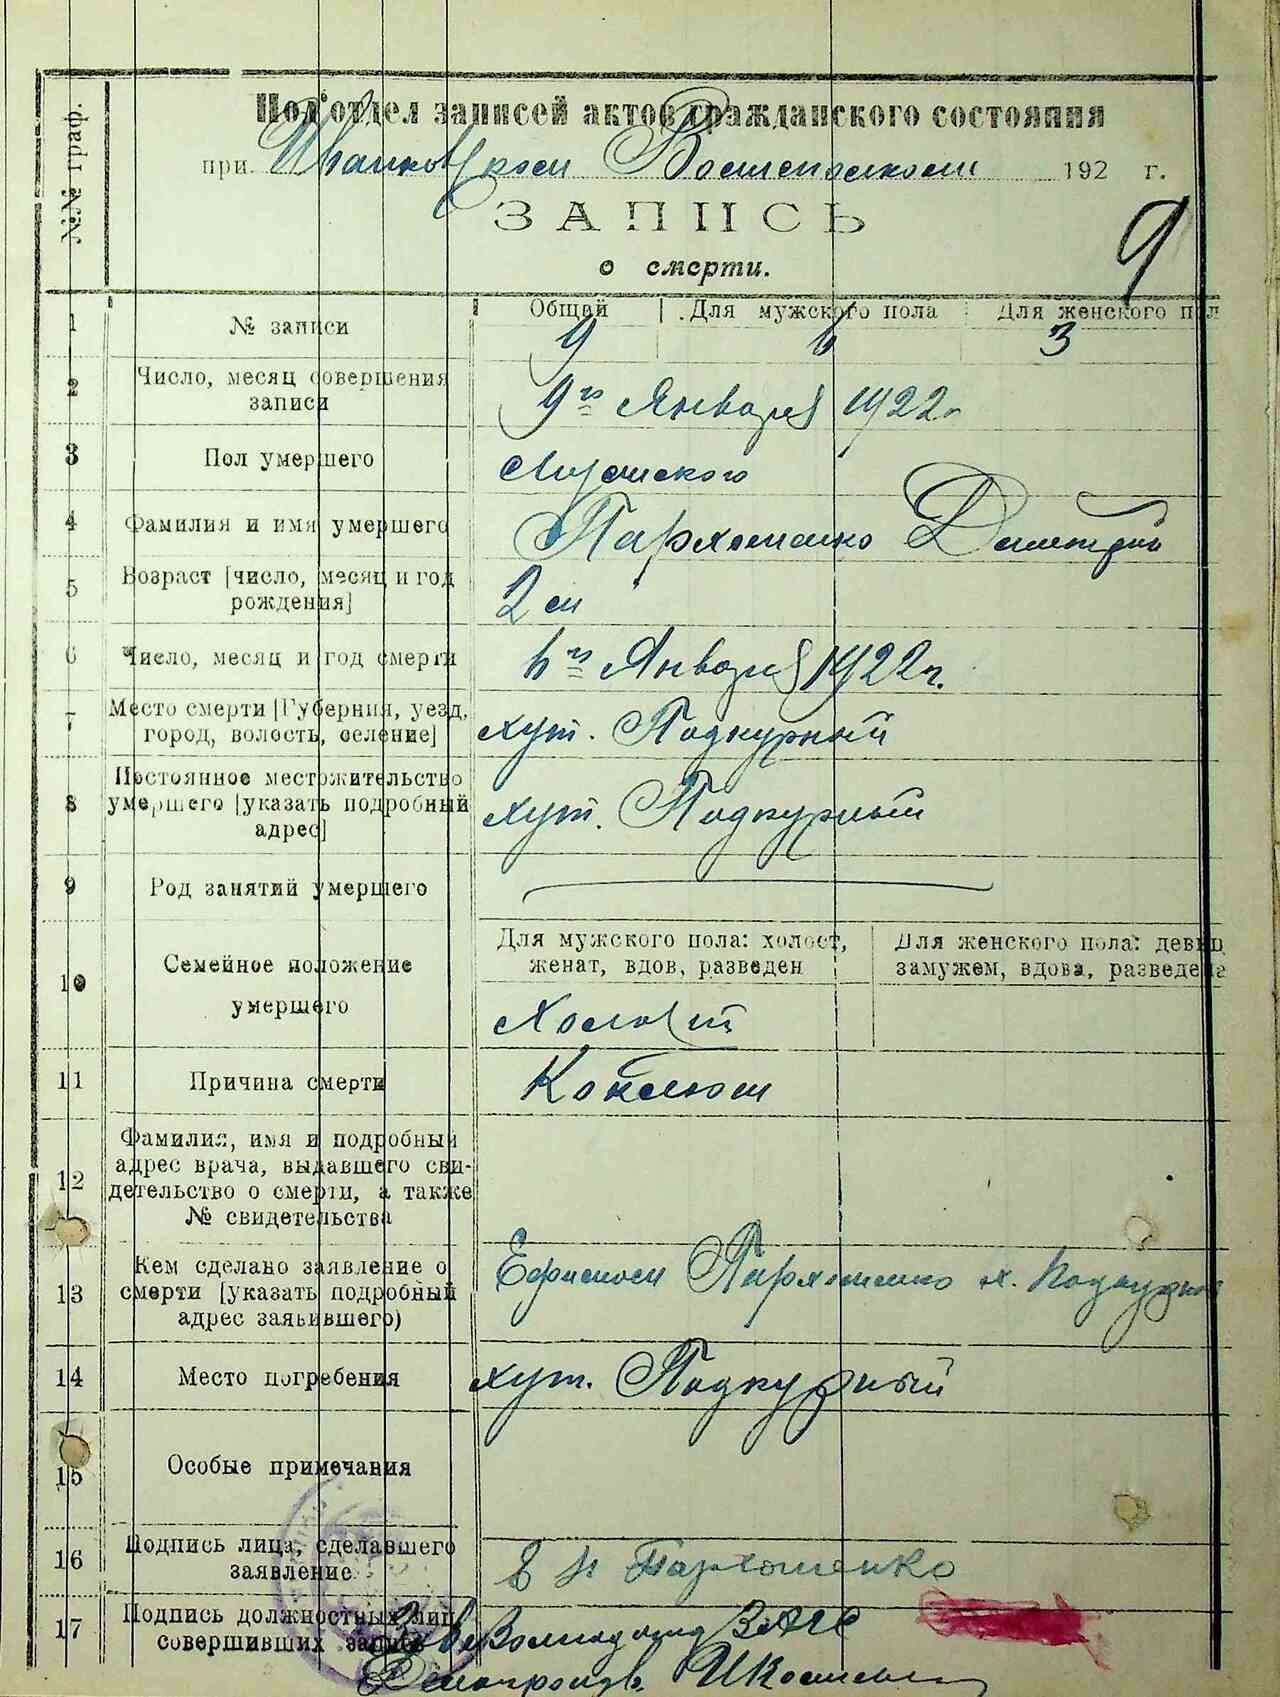 №№ граф.
Под'отдел записей актов гражданского состояния
при Ивановском Волисполкоме 192 г.
ЗАПИСЬ
о смерти.
9
1 № записи Общий Для мужского пола Для женского пол
9 6 3
2 Число, месяц совершения
записи
9го Января 1922г
3 Пол умершего Мужского
4 Фамилия и имя умершего Пархоменко Димитрий
5 Возраст [число, месяц и год
рождения]
2 м
6 Число, месяц и год смерти 6го Января 1922г.
7 Место смерти [Губерния, уезд,
город, волость, селение]
хут. Подкурный
8 Постоянное местожительство
умершего [указать подробный
адрес]
хут. Подкурный
9 Род занятий умершего
10 Семейное положение
умершего
Для мужского пола: холост,
женат, вдов, разведен
Для женского пола: девиц
замужем, вдова, разведена
Холост
11 Причина смерти Коклюш
12 Фамилия, имя и подробный
адрес врача, выдавшего сви-
детельство о смерти, а также
№ свидетельства
13 Кем сделано заявление о
смерти [указать подробный
адрес заявившего)
Пархоменко х. Подкурный
14 Место погребения хут. Подкурный
15 Особые примечания
16 Подпись лица, сделавшего
заявление
Пархоменко
17 Подпись должностных лиц,
совершивших запись
Зав ЗАГС